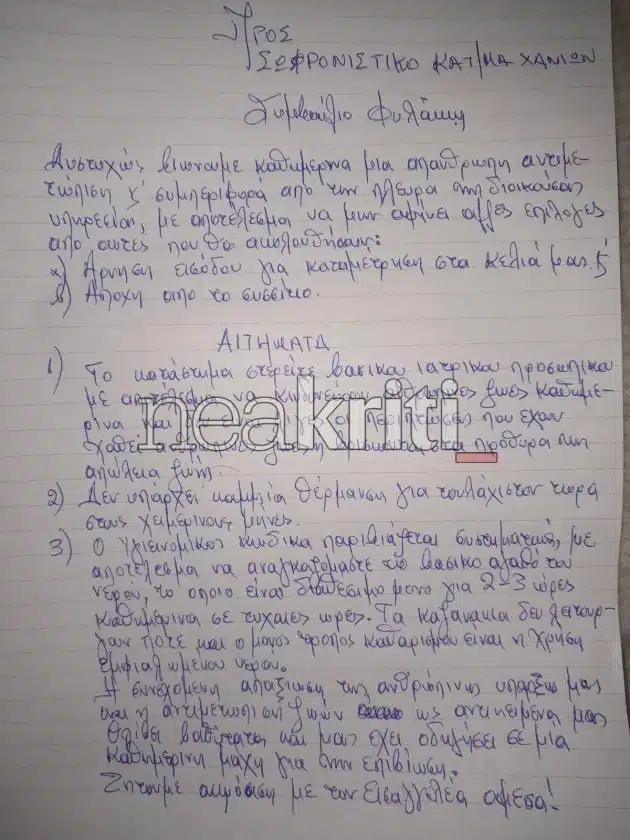 Προς
ΣΩΦΡΟΝΙΣΤΙΚΟ ΚΑΤ/ΜΑ ΧΑΝΙΩΝ
Συμβούλιο Φυλακης
Δυστυχώς βιωνουμε καθημερινα μια απανθρωπη αντιμε-
τώπιση κ' συμπεριφορά από την πλευρα της διοικούσας
υπηρεσίας, με αποτέλεσμα να μην αφήνει αλλες επιλογες
απο αυτες που θα ακολουθήσουν:
α) Αρνηση εισόδου για καταμέτρηση στα κελιά μας.
β) Αποχη απο το συσσίτιο.
ΑΙΤΗΜΑΤΑ
1) Το κατάστημα στερείτε βασικου ιατρικου προσωπικου
με αποτέλεσμα να κινδυνεύουν ζωες καθημε-
ρίνα και περιπτωσεις που εχουν
χαθει βρισκονται στα πρόθυρα
απώλεια ζωης.
2) Δεν υπάρχει καμμία θέρμανση για τουλάχιστον τωρα
στους χειμερινους μηνες.
3) Ο Υγιεινομικος κωδικα παραβιάζεται συστηματικώς, με
αποτέλεσμα να αναγκαζομαστε το βασικο αγαθό του
νερου, το οποιο είναι διαθεσιμο μονο για 2-3 ώρες
καθημερινα σε τυχαιες ωρες. Τα καζανακια δεν λειτουρ-
γουν ποτε και ο μονος τροπος καθαρισμου ειναι η χρηση
εμφιαλωμενου νερου.
Η συνεχομενη απαξιωση της ανθρωπινης υπαρξης μας
και η αντιμετωπιση ζωών ως αντικειμενα μας
θλιβει βαθύτατα και μας εχει οδηγήσει σε μια
καθημερινη μαχη για την επιβίωση.
Ζητουμε ακρόαση με τον Εισαγγελέα αμεσα!
neakriti